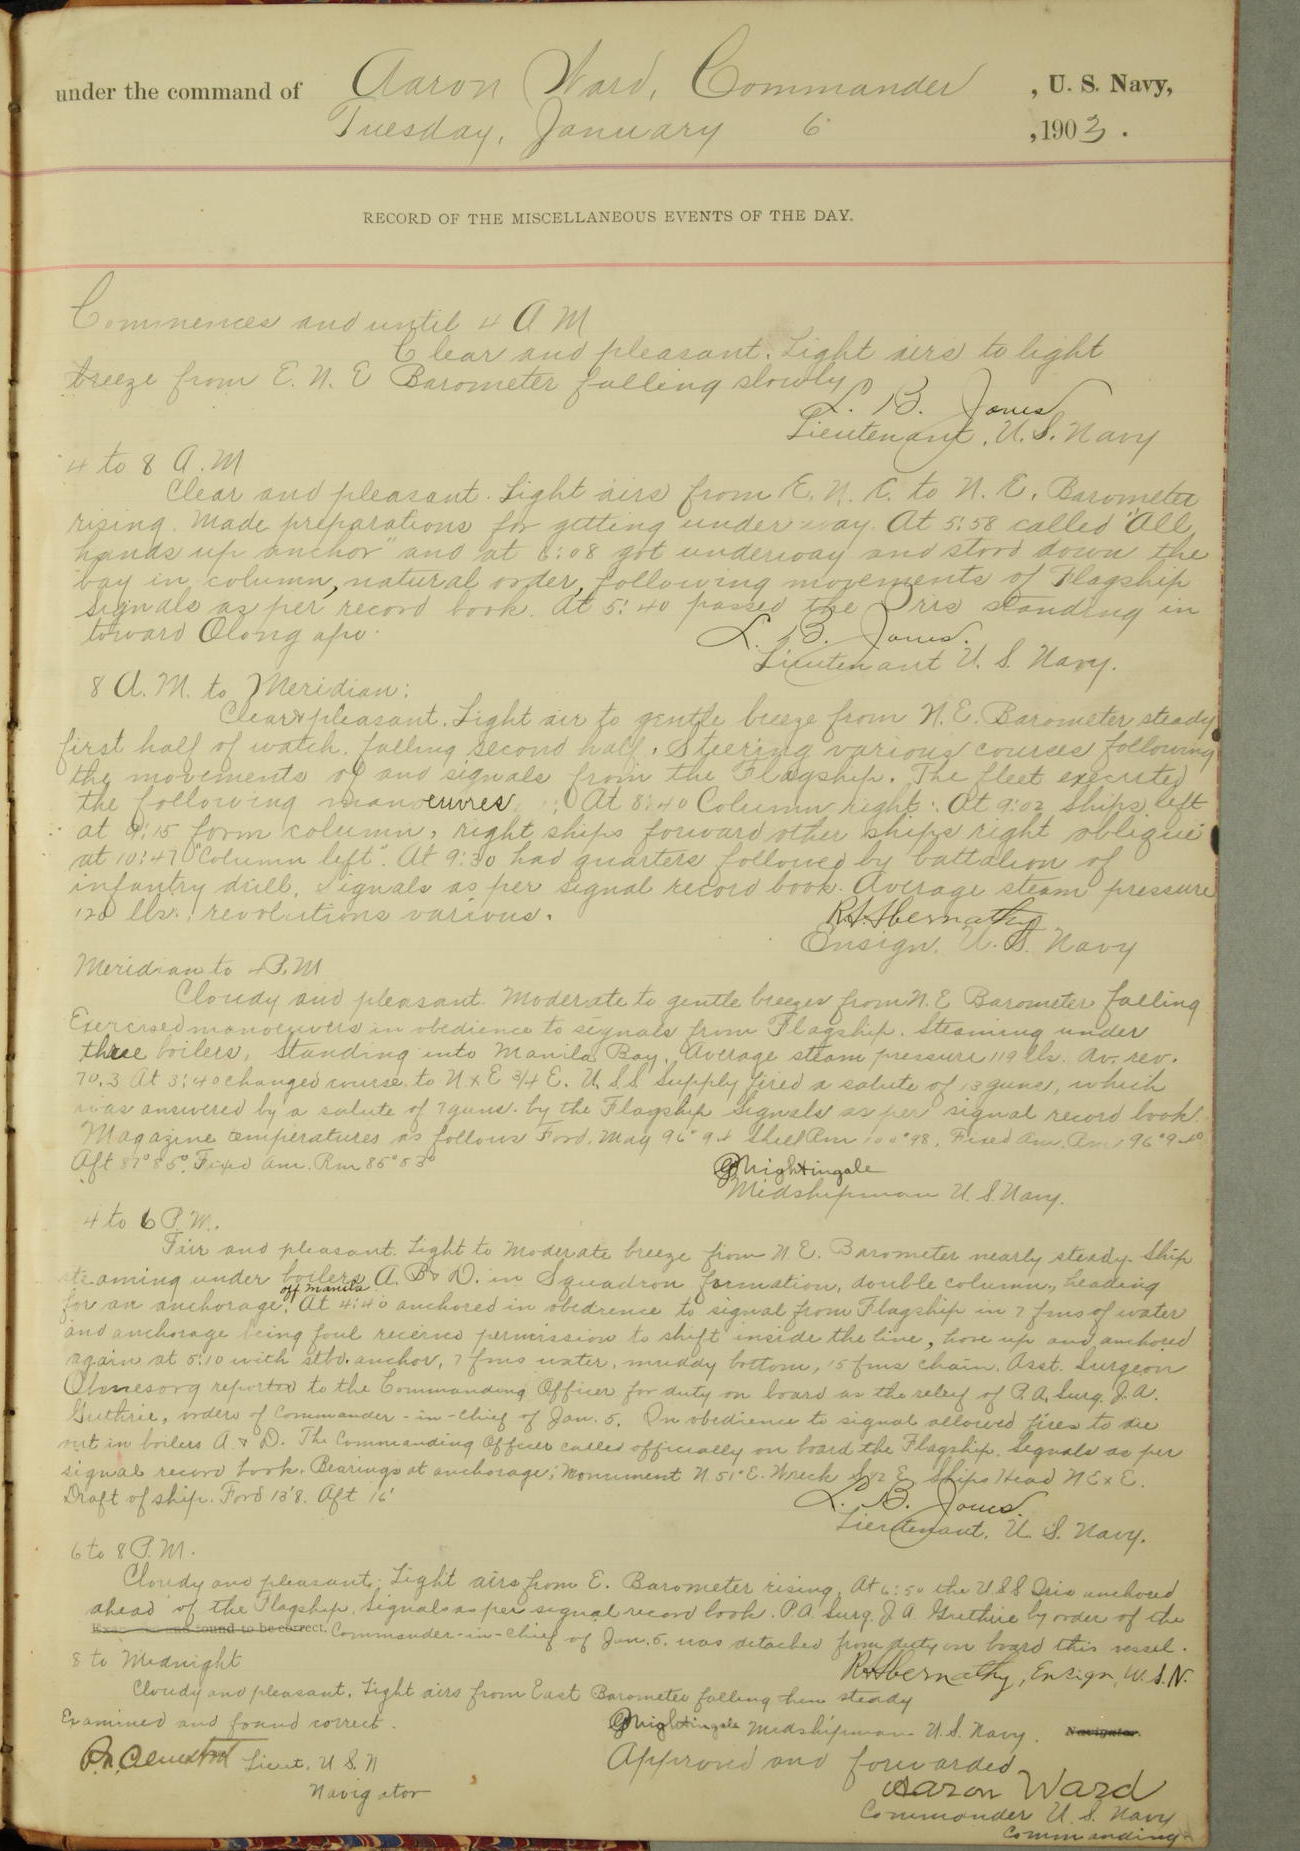 under the command of Aaron Ward, Commander, U. S. Navy,
Tuesday, January 6, 1903.
RECORD OF THE MISCELLANEOUS EVENTS OF THE DAY.
Commences and until 4 A M
Clear and pleasant. Light airs to light
breeze from E. N. E Barometer falling slowly
L. B. Jones
Lieutenant, U. S. Navy
4 to 8 A. M
Clear and pleasant. Light airs from E. N. E. to N. E. Barometer
rising. Made preparations for getting under way. At 5:58 called "All
hands up anchor" and at 6:08 got underway and stood down the
bay in column, natural order, following movements of Flagship
Signals as per record book. At 5:40 passed the Iris standing in
toward Olongapo.
L. B. Jones.
Lieutenant U. S. Navy.
8 A. M. to Meridian:
Clear & pleasant. Light air to gentle breeze from N. E. Barometer steady
first half of watch. falling second half. Steering various courses following
the movements of and signals from the Flagship. The fleet executed
the following manoeuvres: At 8:40 Column right: At 9:02 Ships left
at 9:15 form column, right ships forward other ships right oblique
at 10:47 "Column left". At 9:30 had quarters followed by battalion of
infantry drill. Signals as per signal record book. Average steam pressure
120 lbs.: revolutions various.
R. S. Abernathy
Ensign. U. S. Navy
Meridian to 4 P. M
Cloudy and pleasant. Moderate to gentle breezes from N. E Barometer falling
Exercised manoeuvers in obedience to signals from Flagship. Steaming under
three boilers, Standing into Manila Bay. Average steam pressure 119 lbs. Av. rev.
70.3 At 3:40 changed course to N x E 3/4 E. U. S. S Supply fired a salute of 13 guns, which
was answered by a salute of 7 guns. by the Flagship Signals as per signal record book.
Magazine temperatures as follows Ford. Mag 96° 94 Shell Rm 100° 98. Fixed Am. Rm 96° 94°
Aft 87° 85°. Fixed Am. Rm 85° 83°
Nightingale
Midshipman U. S. Navy.
4 to 6 P. M.
Fair and pleasant. Light to Moderate breeze from N. E. Barometer nearly steady. Ship
steaming under boilers A. B & D. in Squadron formation, double column, heading
for an anchorage off Manila. At 4:40 anchored in obedience to signal from Flagship in 7 fms of water
and anchorage being foul received permission to shift inside the line, hove up and anchored
again at 5:10 with stbd. anchor, 7 fms water, muddy bottom, 15 fms chain. Asst. Surgeon
reported to the Commanding Officer for duty on board as the relief of P. A. Surg. J. A.
Guthrie, orders of Commander-in-Chief of Jan. 5. In obedience to signal allowed fires to die
out in boilers A. & D. The Commanding Officer called officially on board the Flagship. Signals as per
signal record book. Bearings at anchorage; Monument N 51° E. Wreck S 42 E Ships Head N E x E.
Draft of ship. Ford 13'8. Aft 16'
L. B. Jones.
Lieutenant. U. S. Navy.
6 to 8 P. M.
Cloudy and pleasant. Light airs from E. Barometer rising. At 6:50 the U S S Iris anchored
ahead of the Flagship. Signals as per signal record book. P. A. Surg. J A Guthrie by order of the
Examined and found to be correct. Commander-in-Chief of Jan. 5. was detached from duty on board this vessel.
R. S. Abernathy, Ensign, U. S. N.
8 to Midnight
Cloudy and pleasant. Light airs from East Barometer falling then steady
Nightingale Midshipman U. S. Navy. Navigator.
Examined and found correct.
Lieut. U S N
Navigator
Approved and forwarded
Aaron Ward
Commander U. S. Navy
Commanding.